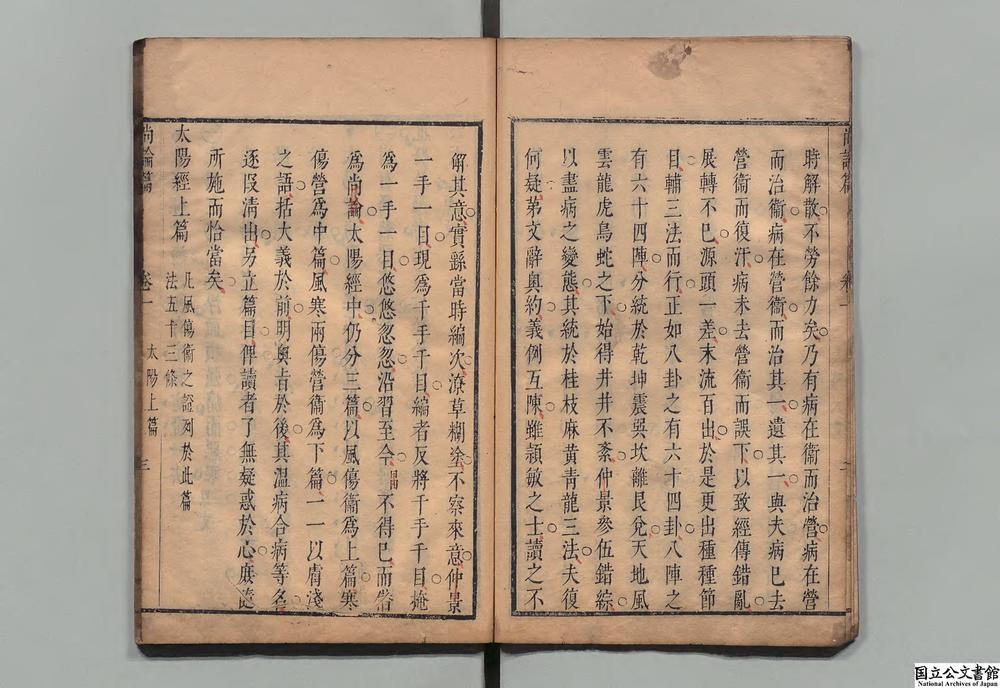 時解散不勞餘力矣乃有病在衛而治營病在營
而治衛病在營衛而治其一遺其一與夫病已去
營衛而復汗病未去營衛而誤下以致經傳錯亂
展轉不已源頭一差末流百出於是更出種種節
目輔三法而行正如八卦之有六十四卦八陣之
有六十四陣分統於乾坤震巽坎離艮兌天地風
雲龍虎鳥蛇之下始得井井不紊仲景參伍錯綜
以盡病之變態其統於桂枝麻黃青龍三法夫復
何疑苐文辭奧約義例互陳雖頴敏之士讀之不
解其意實繇當時編次潦草糊塗不察來意仲景
一手一目現爲千手千目編者反將千手千目掩
爲一手一目悠悠忽忽沿習至今昌不得已而僭
爲尚論太陽經中仍分三篇以風傷衛爲上篇寒
傷營爲中篇風寒兩傷營衛爲下篇一一以膚淺
之語括大義於前明奧旨於後其溫病合病等名
逐段清出另立篇目俾讀者了無疑惑於心庶隨
所施而恰當矣
太陽經上篇
凡風傷衛之證列於此篇
法五十三條
尚論篇
卷一
太陽上篇
三
国立公文書館
National Archives of Japan